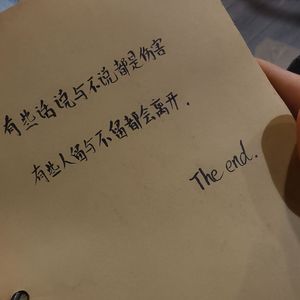 有些话说与不说都是伤害
有些人留与不留都会离开.
The end.